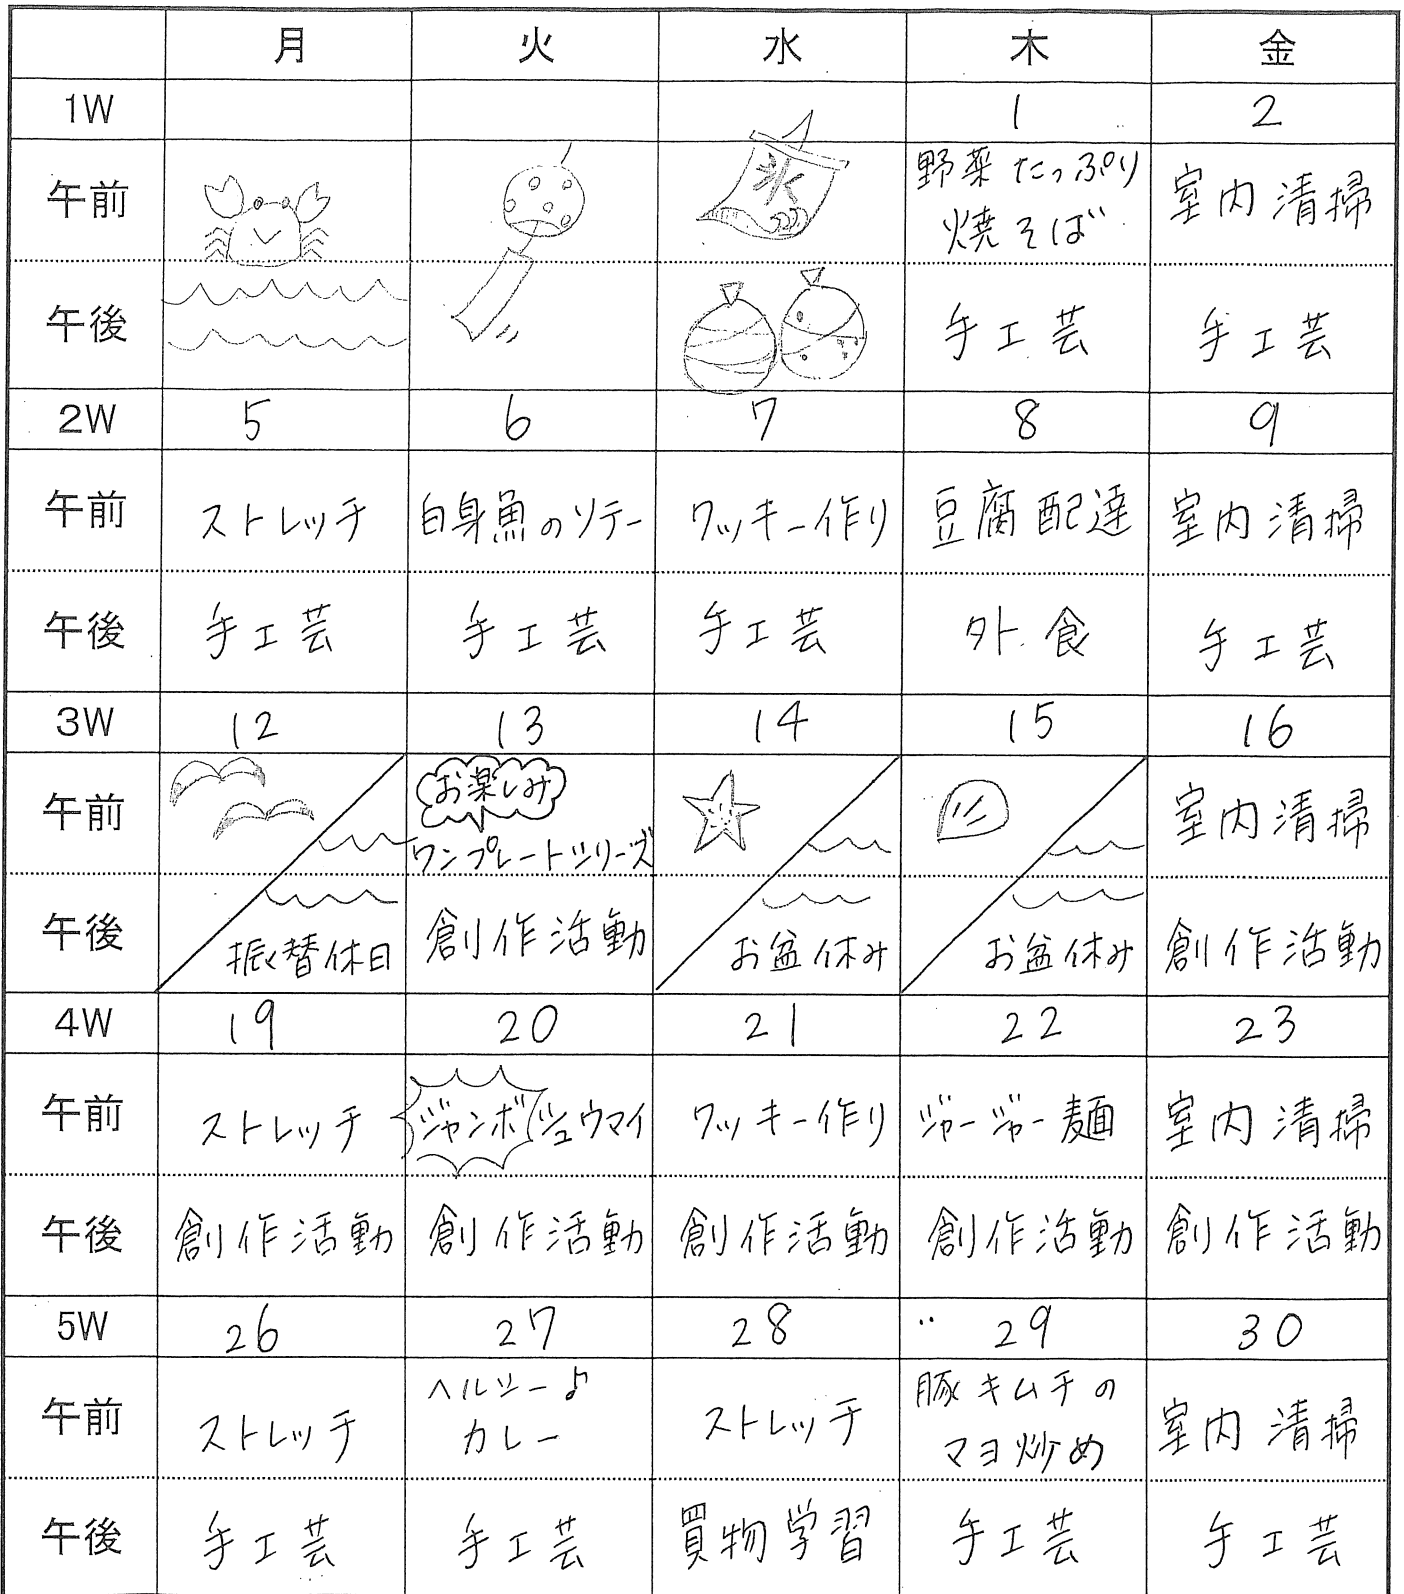 月 火 水 木 金
1W 1 2
午前 氷 野菜たっぷり 室内清掃
焼そば
午後 手工芸 手工芸
2W 5 6 7 8 9
午前 ストレッチ 白身魚のソテー クッキー作り 豆腐配達 室内清掃
午後 手工芸 手工芸 手工芸 外食 手工芸
3W 12 13 14 15 16
午前 お楽しみ 室内清掃
ワンプレートシリーズ
午後 振替休日 創作活動 お盆休み お盆休み 創作活動
4W 19 20 21 22 23
午前 ストレッチ ジャンボシュウマイ クッキー作り ジャージャー麺 室内清掃
午後 創作活動 創作活動 創作活動 創作活動 創作活動
5W 26 27 28 29 30
午前 ストレッチ ヘルシー♪ ストレッチ 豚キムチの 室内清掃
カレー マヨ炒め
午後 手工芸 手工芸 買物学習 手工芸 手工芸